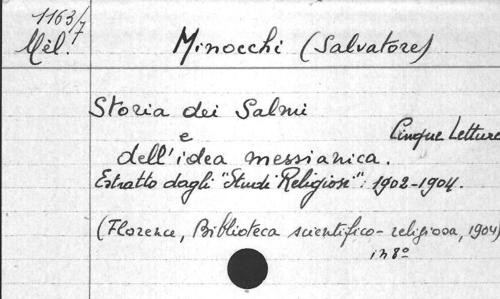 1163/7
Mél.
Minocchi (Salvatore)
Storia dei Salmi
e
dell'idea messianica.
Cinque Letture
Estratto dagli "Studi Religiosi": 1902-1904.
(Florence, Biblioteca scientifico-religiosa, 1904)
in 8º